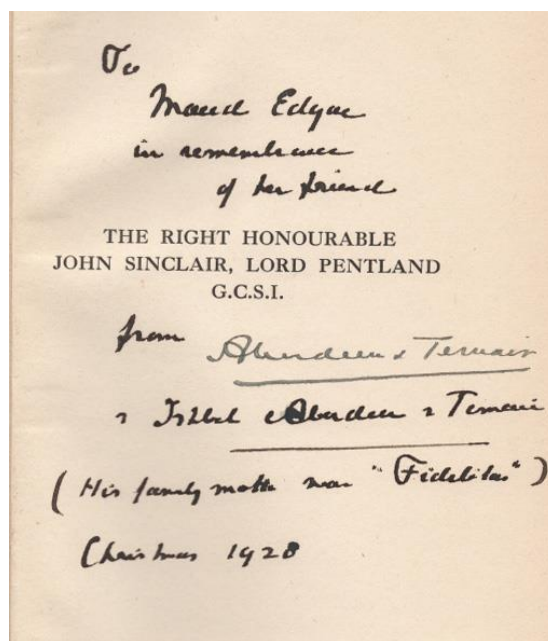 To
Maud Edgar
in remembrance
of her friend
THE RIGHT HONOURABLE
JOHN SINCLAIR, LORD PENTLAND
G.C.S.I.
from
Aberdeen & Temair
& Ishbel Aberdeen & Temair
(His family motto was "Fidelitas")
Christmas 1928